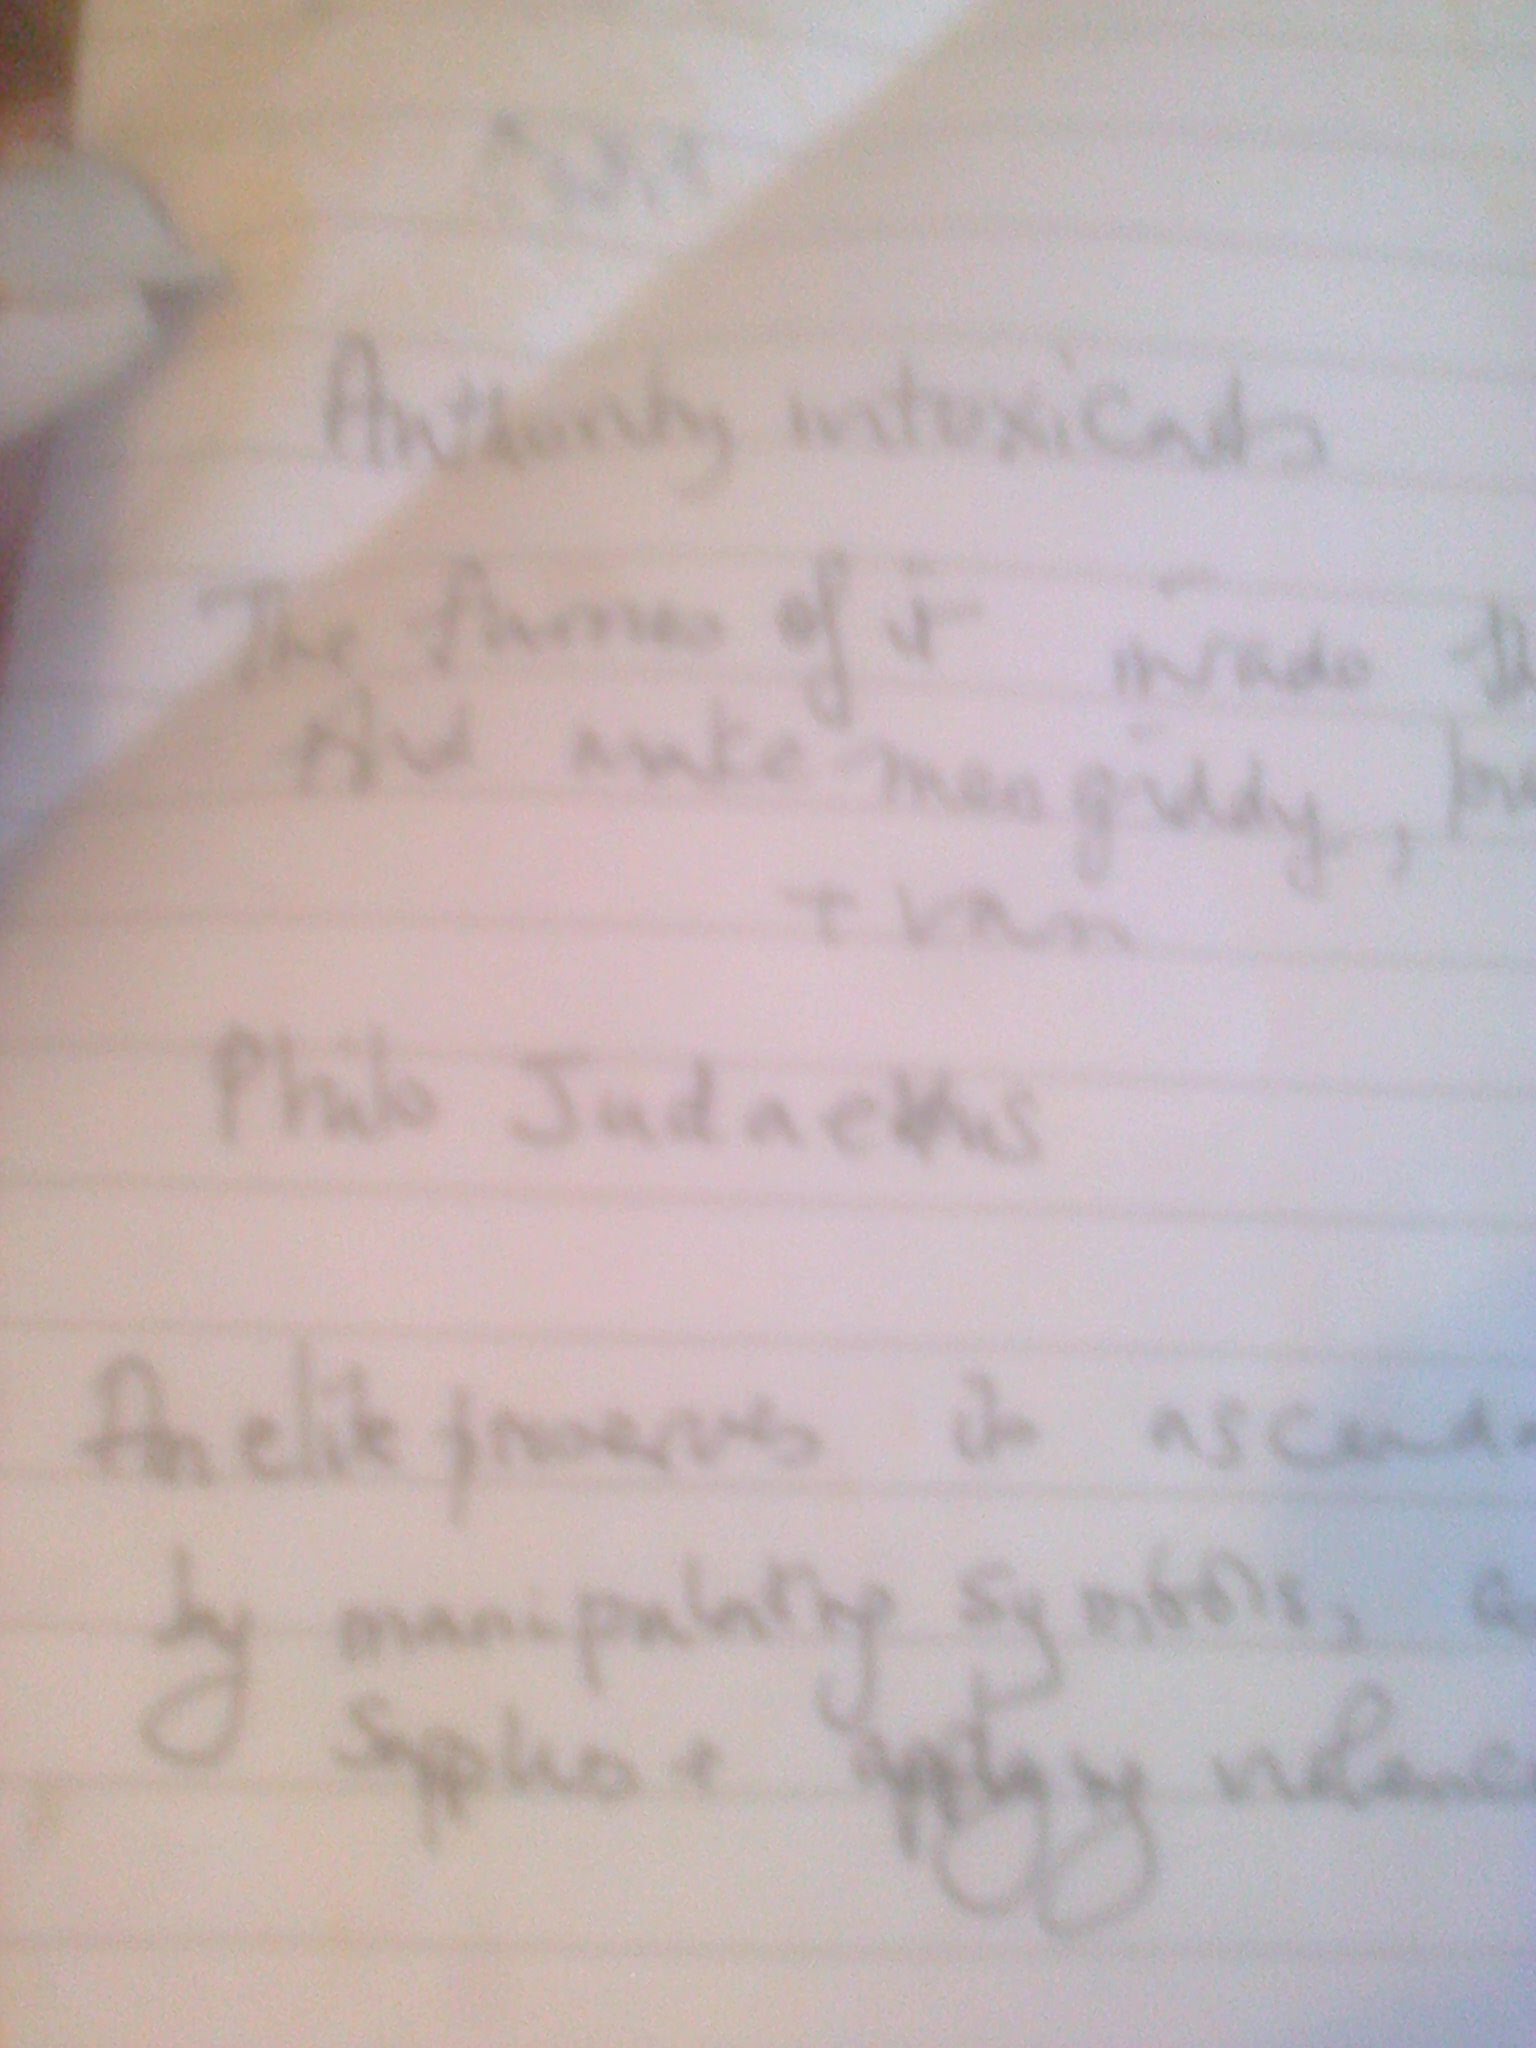 Authority intoxicates
The fumes of it invade th
And make men giddy, pr
+ vain
Philo Judaeus
An elite preserves its ascenda
by manipulating symbols, c
supplies + applying violenc